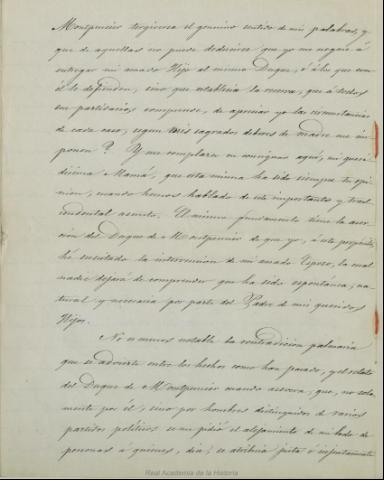 Montpensier tergiversa el genuino sentido de mis palabras, y
que de aquellas no puede deducirse que yo me negara á
entregar mi amado Hijo al mismo Duque, ó á los que con
él le defienden, sino que establecia la reserva, que á todos
sus partidarios comprende, de apreciar yo las circunstancias
de cada caso, segun mis sagrados deberes de madre me im-
ponen? Y me complazco en consignar aquí, mi queri-
dísima Mamá, que esta misma ha sido siempre tu opi-
nion, cuando hemos hablado de este importante y tras-
cendental asunto. El mismo fundamento tiene la aser-
cion del Duque de Montpensier de que yo, á este propósito,
hé suscitado la intervencion de mi amado Esposo, la cual
nadie dejará de comprender que ha sido espontánea, na-
tural y necesaria por parte del Padre de mis queridos
Hijos.
No es menos notable la contradiccion palmaria
que se advierte entre los hechos como han pasado, y el relato
del Duque de Montpensier cuando asevera, que, no sola-
mente por él, sino por hombres distinguidos de varios
partidos políticos se me pidió el alejamiento de mi lado de
personas á quienes, dice, se atribuia justa ó injustamente
Real Academia de la Historia